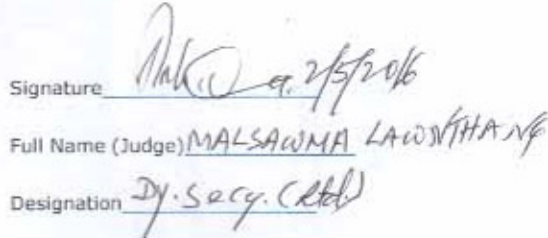 Signature 2/5/2016
Full Name (Judge) MALSAWMA LAWNTHANG
Designation Dy. Secy. (Rtd.)